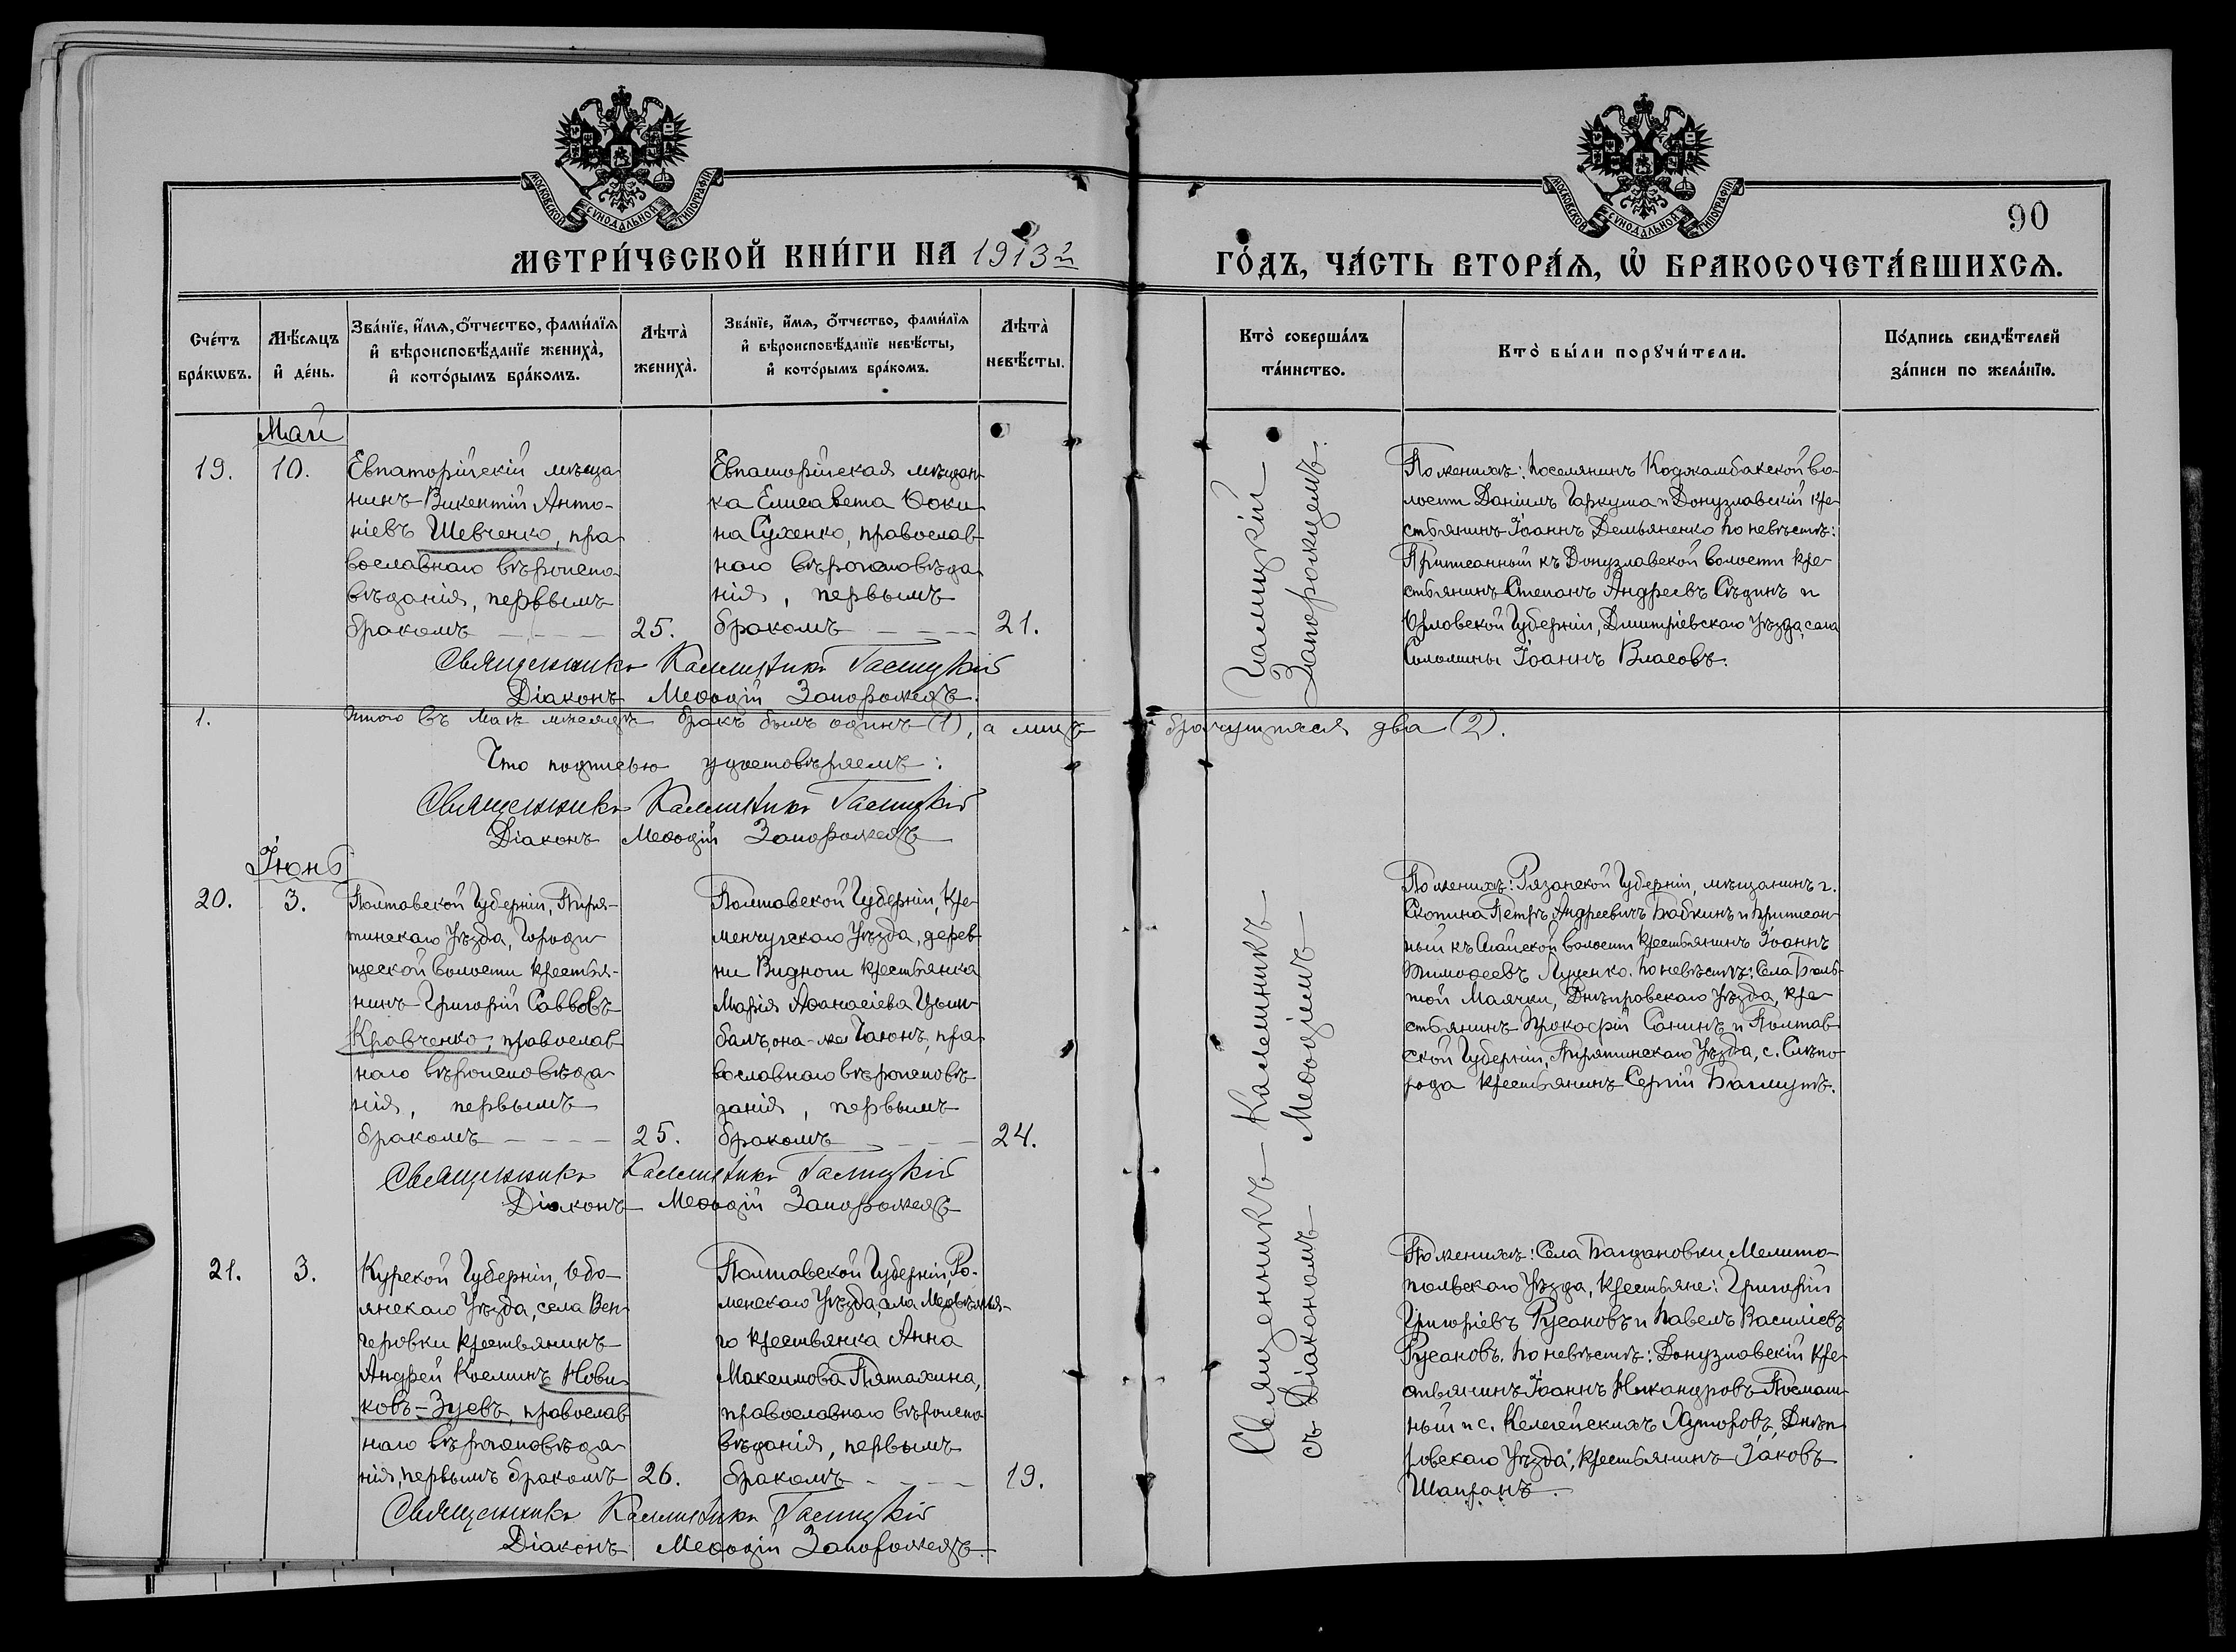 МОСКОВСКОЙ СѴНОДАЛЬНОЙ ТИПОГРАФІИ
МОСКОВСКОЙ СѴНОДАЛЬНОЙ ТИПОГРАФІИ
90
МЕТРИ́ЧЕСКОЙ КНИ́ГИ НА 1913 г.
ГО́ДЪ, ЧА́СТЬ ВТОРА́Ѧ, Ѡ БРАКОСОЧЕТА́ВШИХСѦ.
Сче́тъ бра́кѡвъ.
Мѣ́сѧцъ и҆ де́нь.
Зва́нїе, и҆́мѧ, ѻ҆́тчество, фами́лїѧ
и҆ вѣроисповѣ́данїе жениха̀,
и҆ кото́рымъ бра́комъ.
Лѣта̀ жениха̀.
Зва́нїе, и҆́мѧ, ѻ҆́тчество, фами́лїѧ
и҆ вѣроисповѣ́данїе невѣ́сты,
и҆ кото́рымъ бра́комъ.
Лѣта̀ невѣ́сты.
Кто̀ соверша́лъ та́инство.
Кто̀ бы́ли порꙋчи́тели.
По́дпись свидѣ́телей
за́писи по жела́нїю.
Май
19.
10.
Евпаторійскій мѣща-
нинъ Викентій Анто-
ніевъ Шевченко, пра-
вославнаго вѣроиспо-
вѣданія, первымъ
бракомъ
25.
Евпаторійская мѣщан-
ка Елисавета Ѳоки-
на Сухенко, православ-
наго вѣроисповѣда-
нія, первымъ
бракомъ
21.
Священникъ Каллиникъ Галицкій
Діаконъ Меѳодій Запорожецъ.
Галицкій
Запорожцемъ.
По женихѣ: поселянинъ Коджамбакской во-
лости Даніилъ Гаркуша и Донузлавскій кре-
стьянинъ Іоаннъ Демьяненко по невѣстѣ:
Приписанный къ Донузлавской волости кре-
стьянинъ Степанъ Андреевъ Сѣдинъ и
Орловской Губерніи, Дмитріевскаго уѣзда, села
Соломины Іоаннъ Власовъ.
1.
Итого въ маѣ мѣсяцѣ бракъ былъ одинъ (1), а лицъ брачущихся два (2).
Что подписью удостовѣряемъ:
Священникъ Каллиникъ Галицкій
Діаконъ Меѳодій Запорожецъ
Іюнь
20.
3.
Полтавской Губерніи, Пиря-
тинскаго Уѣзда, Городи-
щеской волости крестья-
нинъ Григорій Саввовъ
Кравченко, православ-
наго вѣроисповѣда-
нія, первымъ
бракомъ
25.
Полтавской Губерніи, Кре-
менчугскаго Уѣзда, дерев-
ни Видной крестьянка
Марія Аѳанасіева Цым-
балъ, она-же Гаюнъ, пра-
вославнаго вѣроисповѣ-
данія, первымъ
бракомъ
24.
Священникъ Каллиникъ Галицкій
Діаконъ Меѳодій Запорожецъ
Священникъ Каллиникъ
съ Діакономъ Меѳодіемъ
По женихѣ: Рязанской Губерніи, мѣщанинъ г.
Скопина Петръ Андреевичъ Бабкинъ и приписан-
ный къ волости крестьянинъ Іоаннъ
Тимоѳеевъ Луценко. по невѣстѣ: Села Боль-
шой Маячки, Днѣпровскаго Уѣзда, кре-
стьянинъ Прокофій Санинъ и Полтав-
ской Губерніи, Пирятинскаго Уѣзда, с. Слѣпо-
рода крестьянинъ Сергій Баглущъ.
21.
3.
Курской Губерніи, Обо-
янскаго Уѣзда, села Вен-
геровки крестьянинъ
Андрей Косминъ Нови-
ковъ-Зуевъ, православ-
наго вѣроисповѣда-
нія, первымъ бракомъ
26.
Полтавской Губерніи, Ро-
менскаго Уѣзда, села Медвѣжья-
го крестьянка Анна
Максимова Пятахина,
православнаго вѣроиспо-
вѣданія, первымъ
бракомъ
19.
Священникъ Каллиникъ Галицкій
Діаконъ Меѳодій Запорожецъ.
По женихѣ: Села Богдановки, Мелито-
польскаго Уѣзда, крестьяне: Григорій
Григоріевъ Русановъ и Павелъ Василіевъ
Русановъ. по невѣстѣ: Донузлавскій кре-
стьянинъ Іоаннъ Никандровъ
и с. Келегейскихъ Хуторовъ, Днѣп-
ровскаго Уѣзда, крестьянинъ Іаковъ
Шапранъ.